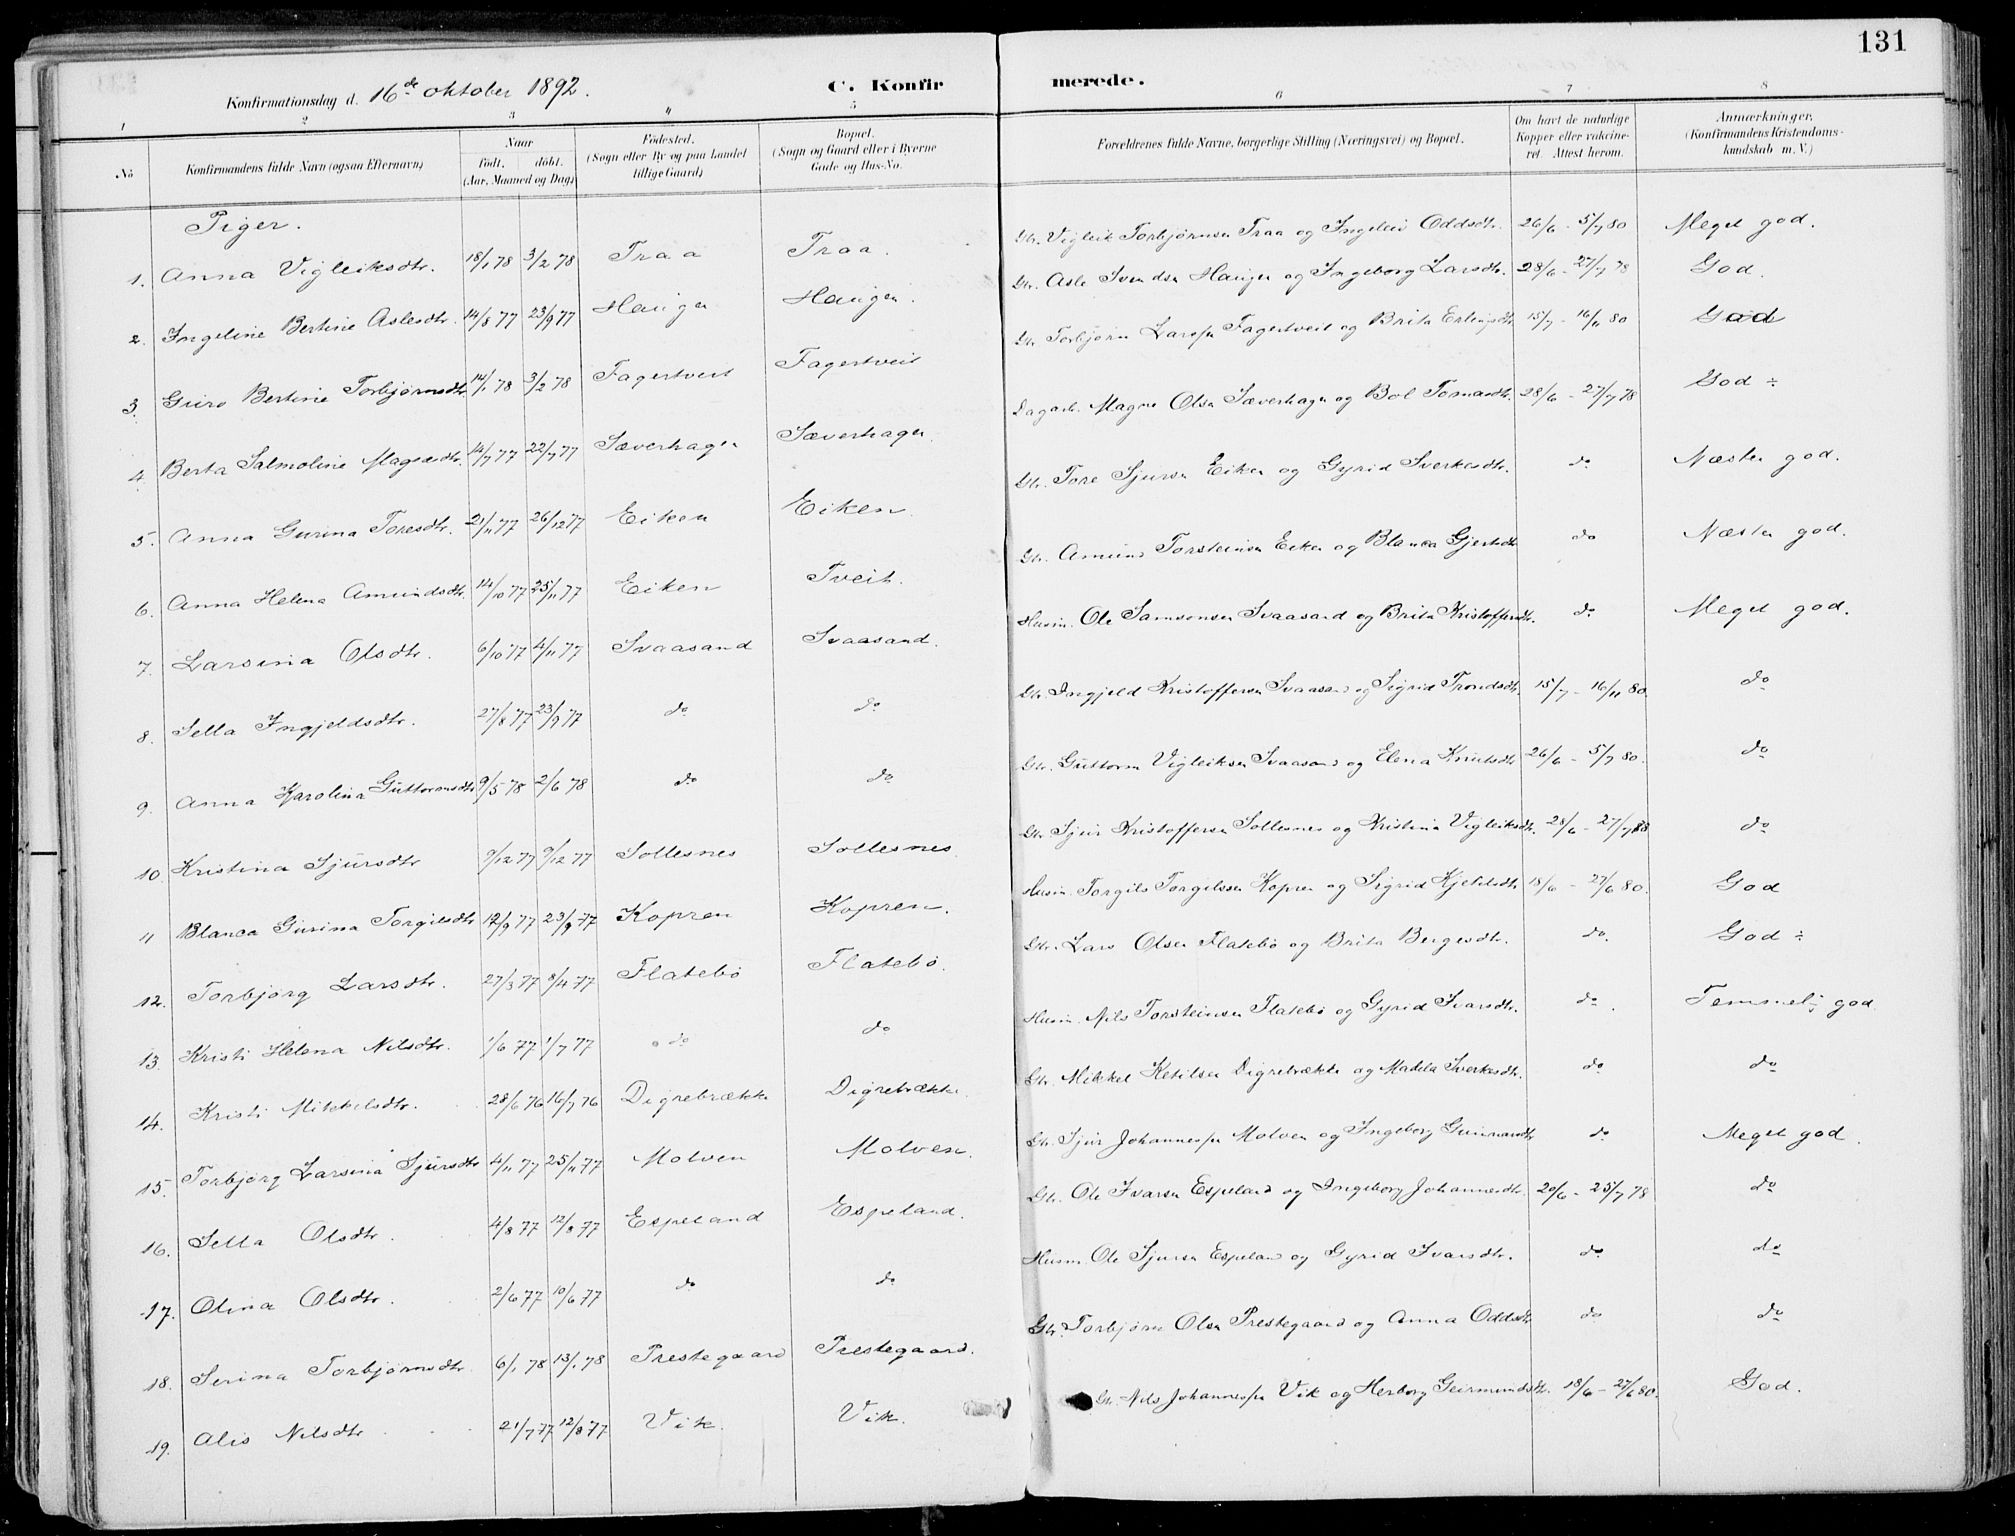 131
Konfirmationsdag d. 16de oktober 1892. C. Konfirmerede.
1 2 3 4 5 6 7 8
No
Konfirmandens fulde Navn (ogsaa Efternavn)
Naar födt. döbt. (Aar, Maaned og Dag)
Födested. (Sogn eller By og paa Landet tillige Gaard)
Bopæl. (Sogn og Gaard eller i Byerne Gade og Hus-No.
Forældrenes fulde Navne, borgerlige Stilling (Næringsvei) og Bopæl.
Om havt de naturlige Kopper eller vakcineret. Attest herom.
Anmærkninger. (Konfirmandens Kristendomskundskab m. V.)
Piger.
1. Anna Vigleiksdtr. 18/1 78 3/2 78 Traa Traa. Gbr. Vigleik Torbjørnsen Traa og Ingeleiv Oddsdtr. 26/6 - 5/7 80 Meget god.
2. Ingeline Bertine Aslesdtr. 14/8 77 23/9 77 Haugen Haugen. Gbr. Asle Svendsen Haugen og Ingeborg Larsdtr. 28/6 - 27/7 78 God.
3. Guro Bertine Torbjørnsdtr. 14/1 78 3/2 78 Fagertveit Fagertveit Gbr. Torbjørn Larsen Fagertveit og Brita Erlingsdtr. 15/7 - 16/11 80 God
4. Berta Salmoline Magnesdtr. 14/7 77 22/7 77 Sæverhagen Sæverhagen. Dagarb. Magne Olsen Sæverhagen og Bol Tomasdtr. 28/6 - 27/7 78 God ÷
5. Anna Gurina Toresdtr. 21/11 77 26/12 77 Eiken Eiken. Gbr. Tore Sjursen Eiken og Gyrid Sverkesdtr. do Næsten god.
6. Anna Helena Amundsdtr. 14/10 77 25/11 77 Eiken Tveit. Gbr. Amund Torsteinsen Eiken og Blanca Gjertsdtr do Næsten god.
7. Larsina Olsdtr. 6/10 77 4/11 77 Svaasand Svaasand. Husm. Ole Samsonsen Svaasand og Brita Kristoffersdtr. do Meget god.
8. Sella Ingjeldsdtr. 27/8 77 23/9 77 do do Gbr. Ingjeld Kristoffersen Svaasand og Sigrid Trondsdtr. 15/7 - 16/11 80. do
9. Anna Karolina Guttormsdtr. 9/5 78 2/6 78 do do Gbr. Guttorm Vigleiksen Svaasand og Elena Knutsdtr 26/6 - 5/7 80. do
10. Kristina Sjursdtr 9/12 77 9/12 77 Sollesnes Sollesnes. Gbr. Sjur Kristoffersen Sollesnes og Kristina Vigleiksdtr. 28/6 - 27/7 78 do
11 Blanca Gurina Torgilsdtr 12/9 77 23/9 77 Kopren Kopren. Husm. Torgils Torgilssen Kopren og Sigrid Kjetilsdtr 18/6 - 27/6 80. God
12. Torbjørg Larsdtr. 27/3 77 8/4 77 Flatebø Flatebø. Gbr. Lars Olsen Flatebø og Brita Bergesdtr. do. God ÷
13. Kristi Helena Nilsdtr. 1/6 77 1/7 77 do do Husm. Nils Torsteinsen Flatebø og Gyrid Ivarsdtr. do. Temmeli. god
14. Kristi Mikkelsdtr. 28/6 76 16/7 76 Digrebrække Digrebrække. Gbr. Mikkel Ketilsen Digrebrække og Madela Sverkesdtr. do do
15. Torbjørg Larsina Sjursdtr 4/11 77 25/11 77 Molven Molven. Gbr. Sjur Johannessen Molven og Ingeborg Gunnarsdtr do Meget god.
16. Sella Olsdtr. 4/8 77 12/8 77 Espeland Espeland. Gbr. Ole Ivarsen Espeland og Ingeborg Johannesdtr. 20/6 - 25/7 78 do
17. Olina Olsdtr. 2/6 77 10/6 77 do do Husm. Ole Sjursen Espeland og Gyrid Ivarsdtr. do do
18. Serina Torbjørnsdtr. 6/1 78 13/1 78 Prestegaard Prestegaard. Gbr. Torbjørn Olsen Prestegaard og Anna Oddsdtr do do
19. Alis Nilsdtr 21/7 77 12/8 77 Vik. Vik. Gbr. Nils Johannessen Vik og Herborg Geirmundsdtr. 18/6 - 27/6 80. God.